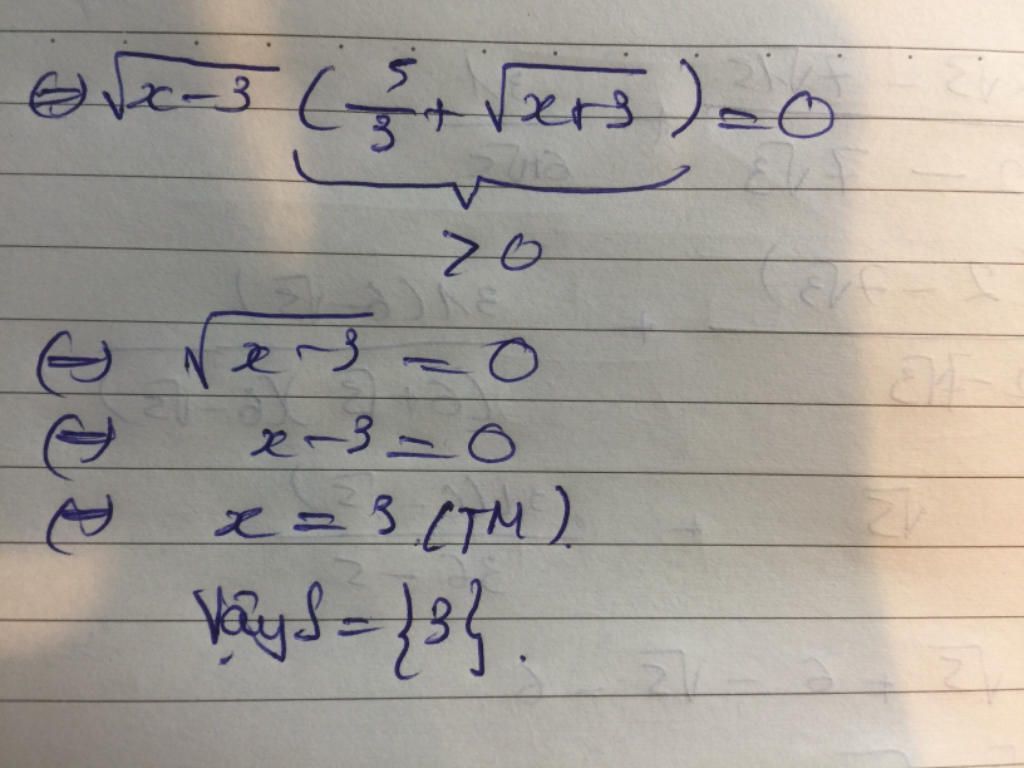 ⇔ √(x-3) (5/3 + √(x+3)) = 0
> 0
⇔ √(x-3) = 0
⇔ x-3 = 0
⇔ x = 3 (TM).
Vậy S = {3}.